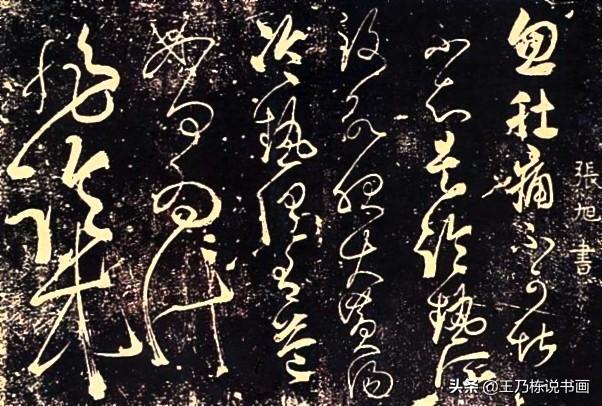 張旭書
忽肚痛不可堪
不知是冷熱所
致欲服大黃湯
冷熱俱有益
如何為計
非臨床
头条 @王乃栋说书画